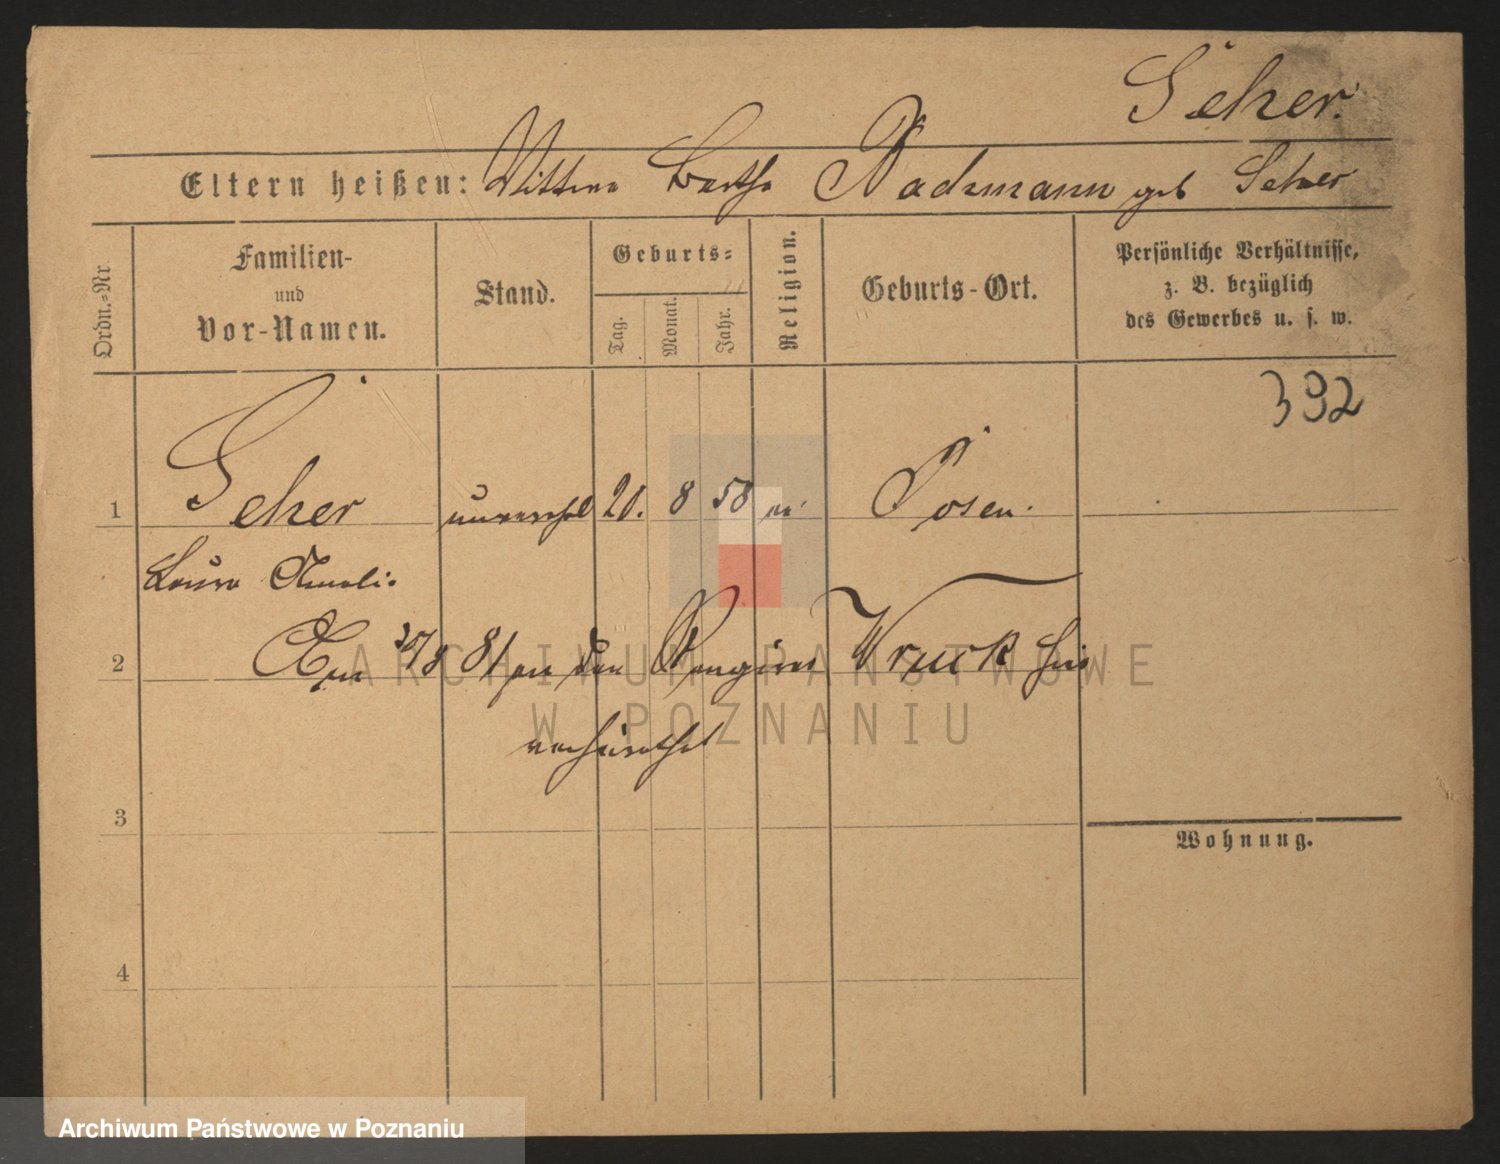 Seher.
Eltern heißen: Wittwe Bertha Radzmann geb Seher
Ordn.-Nr.
Familien-
und
Vor-Namen.
Stand.
Geburts-
Tag.
Monat.
Jahr.
Religion.
Geburts-Ort.
Persönliche Verhältnisse,
z. B. bezüglich
des Gewerbes u. s. w.
392
1 Seher unverehel 20. 8 58 ev Posen.
Laura Amali
2 Am 30/8 81 an den Wruck hier
verheirathet
3
Wohnung.
4
ARCHIWUM PAŃSTWOWE
W POZNANIU
Archiwum Państwowe w Poznaniu